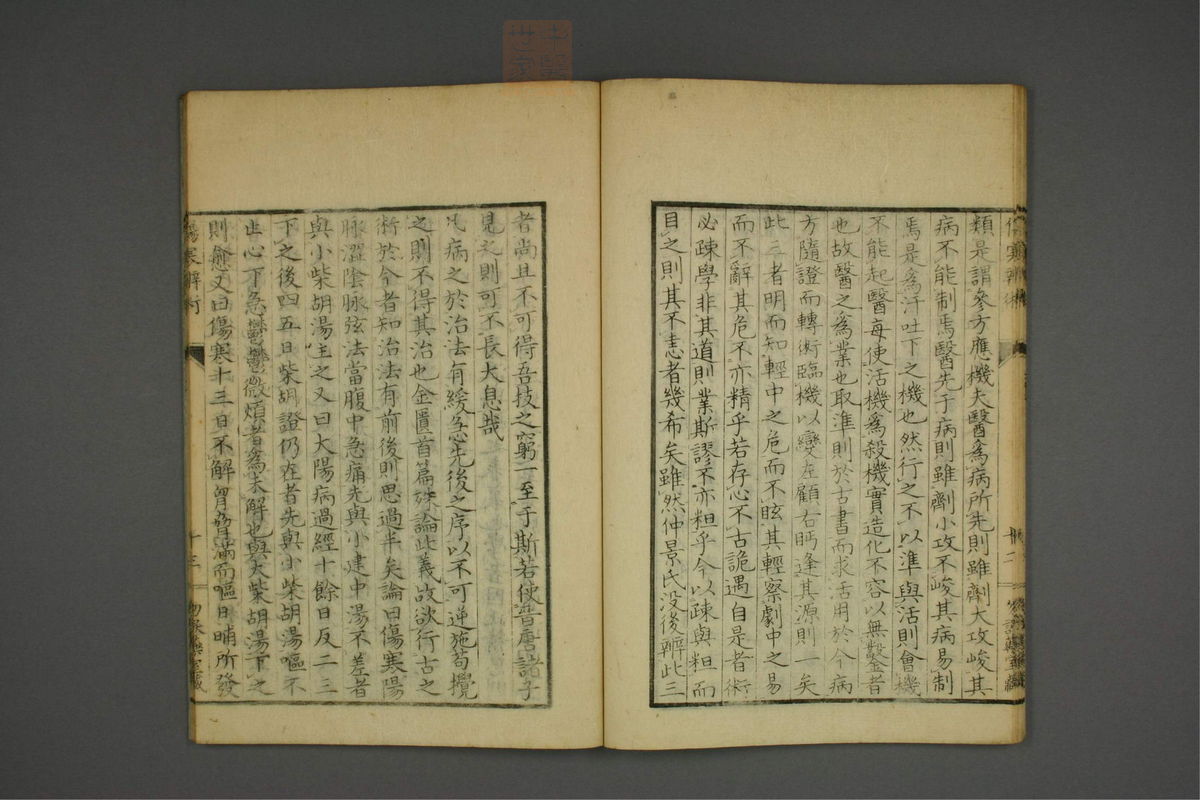 中醫
世家
類是謂參方應機夫醫爲病所先則雖劑大攻峻其
病不能制焉醫先于病則雖劑小攻不峻其病易制
焉是爲汗吐下之機也然行之不以準與活則會機
不能起醫每使活機爲殺機實造化不容以無鑿者
也故醫之爲業也取準則於古書而求活用於今病
方隨證而轉術臨機以變左顧右眄逢其源則一矣
此三者明而知輕中之危而不眩其輕察劇中之易
而不辭其危不亦精乎若存心不古詭遇自是者術
必疎學非其道則業斯謬不亦粗乎今以疎與粗而
目之則其不恚者幾希矣雖然仲景氏没後辨此三
者尚且不可得吾技之窮一至于斯若使晉唐諸子
見之則可不長大息哉
凡病之於治法有緩急先後之序以不可逆施苟攪
之則不得其治也金匱首篇論此義故欲行古之
術於今者知治法有前後則思過半矣論曰傷寒陽
脉澀陰脉弦法當腹中急痛先與小建中湯不差者
與小柴胡湯主之又曰大陽病過經十餘日反二三
下之後四五日柴胡證仍在者先與小柴胡湯嘔不
止心下急鬱鬱微煩者爲未解也與大柴胡湯下之
則愈又曰傷寒十三日不解胷脅滿而嘔日晡所發
傷寒辨術
十三